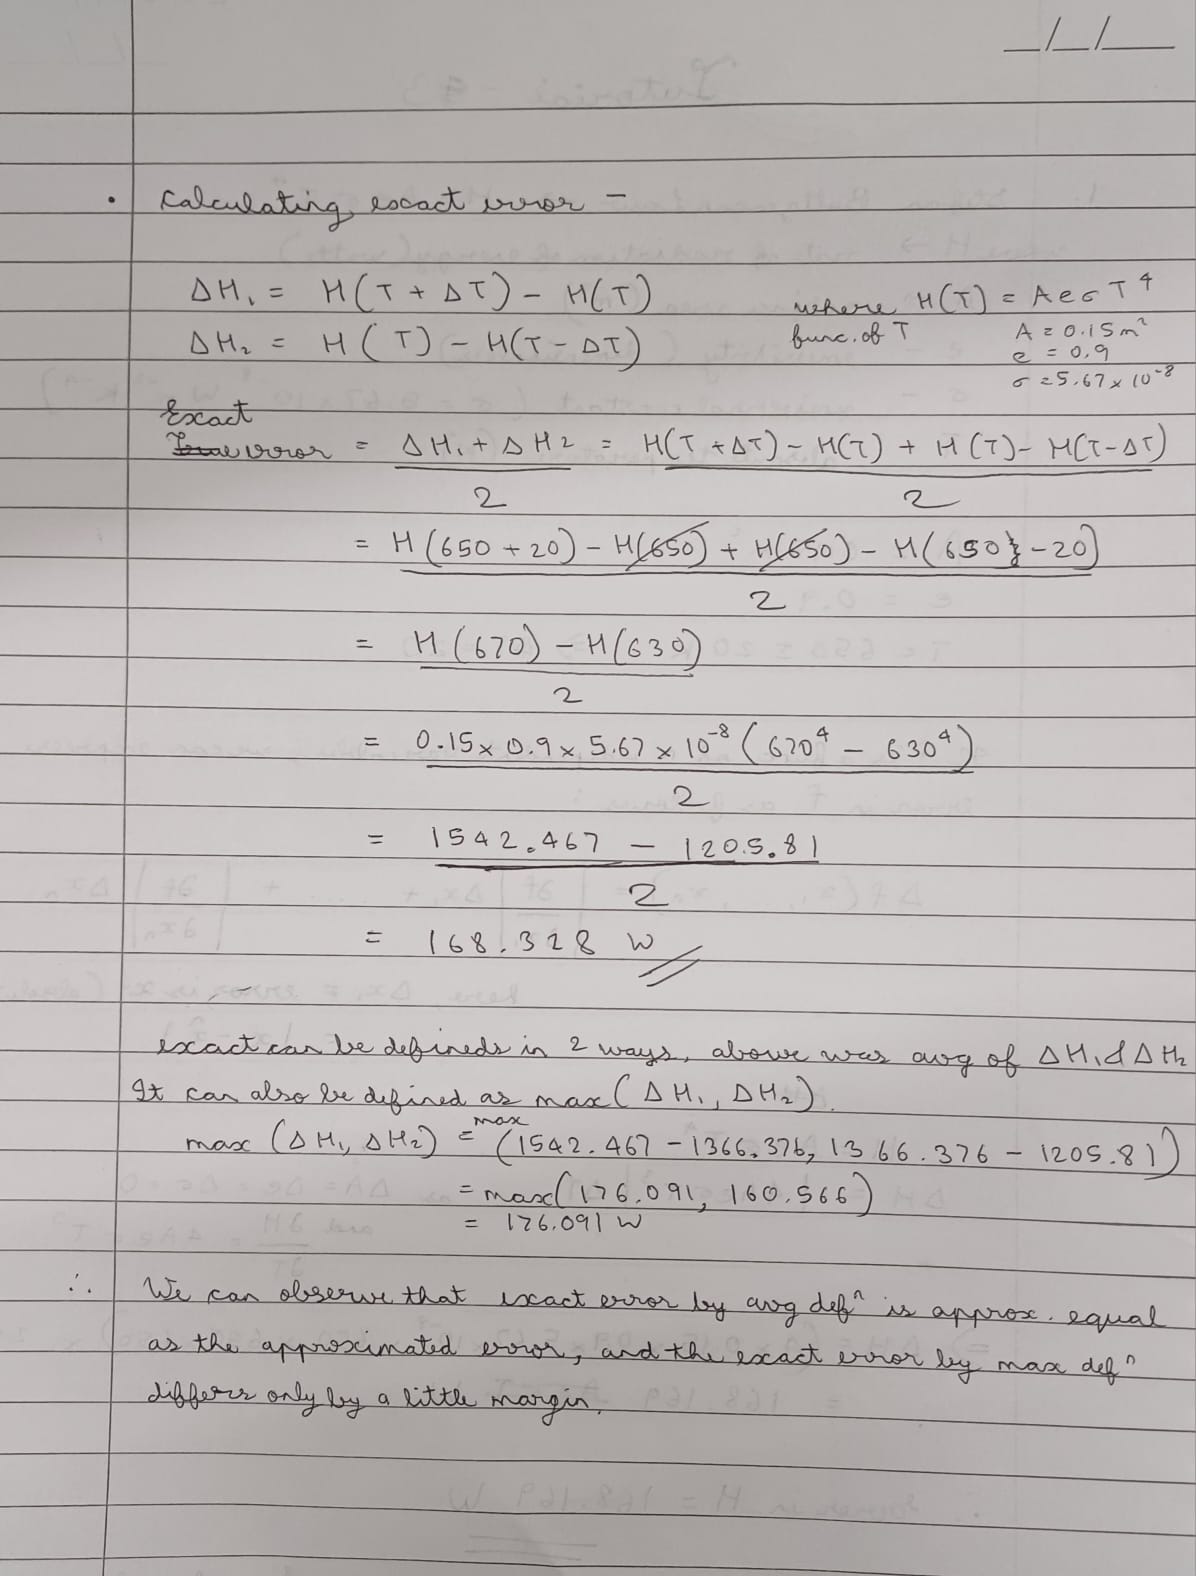 _/_/__
. Calculating exact error –
ΔH₁ = H(T + ΔT) – H(T) where H(T) = AeσT⁴
func. of T A = 0.15m²
ΔH₂ = H(T) – H(T – ΔT) e = 0.9
σ = 5.67 x 10⁻⁸
Exact
True error = ΔH₁ + ΔH2 = H(T + ΔT) – H(T) + H(T) – H(T-ΔT)
2 2
= H(650 + 20) – H(650) + H(650) – H(650} – 20)
2
= H(670) – H(630)
2
= 0.15 x 0.9 x 5.67 x 10⁻⁸ (670⁴ – 630⁴)
2
= 1542.467 – 1205.81
2
= 168.328 W
exact can be defineds in 2 ways, above was avg of ΔH₁ & ΔH₂
It can also be defined as max(ΔH₁, ΔH₂).
max (ΔH₁, ΔH₂) = max (1542.467 – 1366.376, 1366.376 – 1205.81)
= max(176.091, 160.566)
= 176.091 W
∴ We can observe that exact error by avg defⁿ is approx. equal
as the approximated error, and the exact error by max defⁿ
differs only by a little margin.